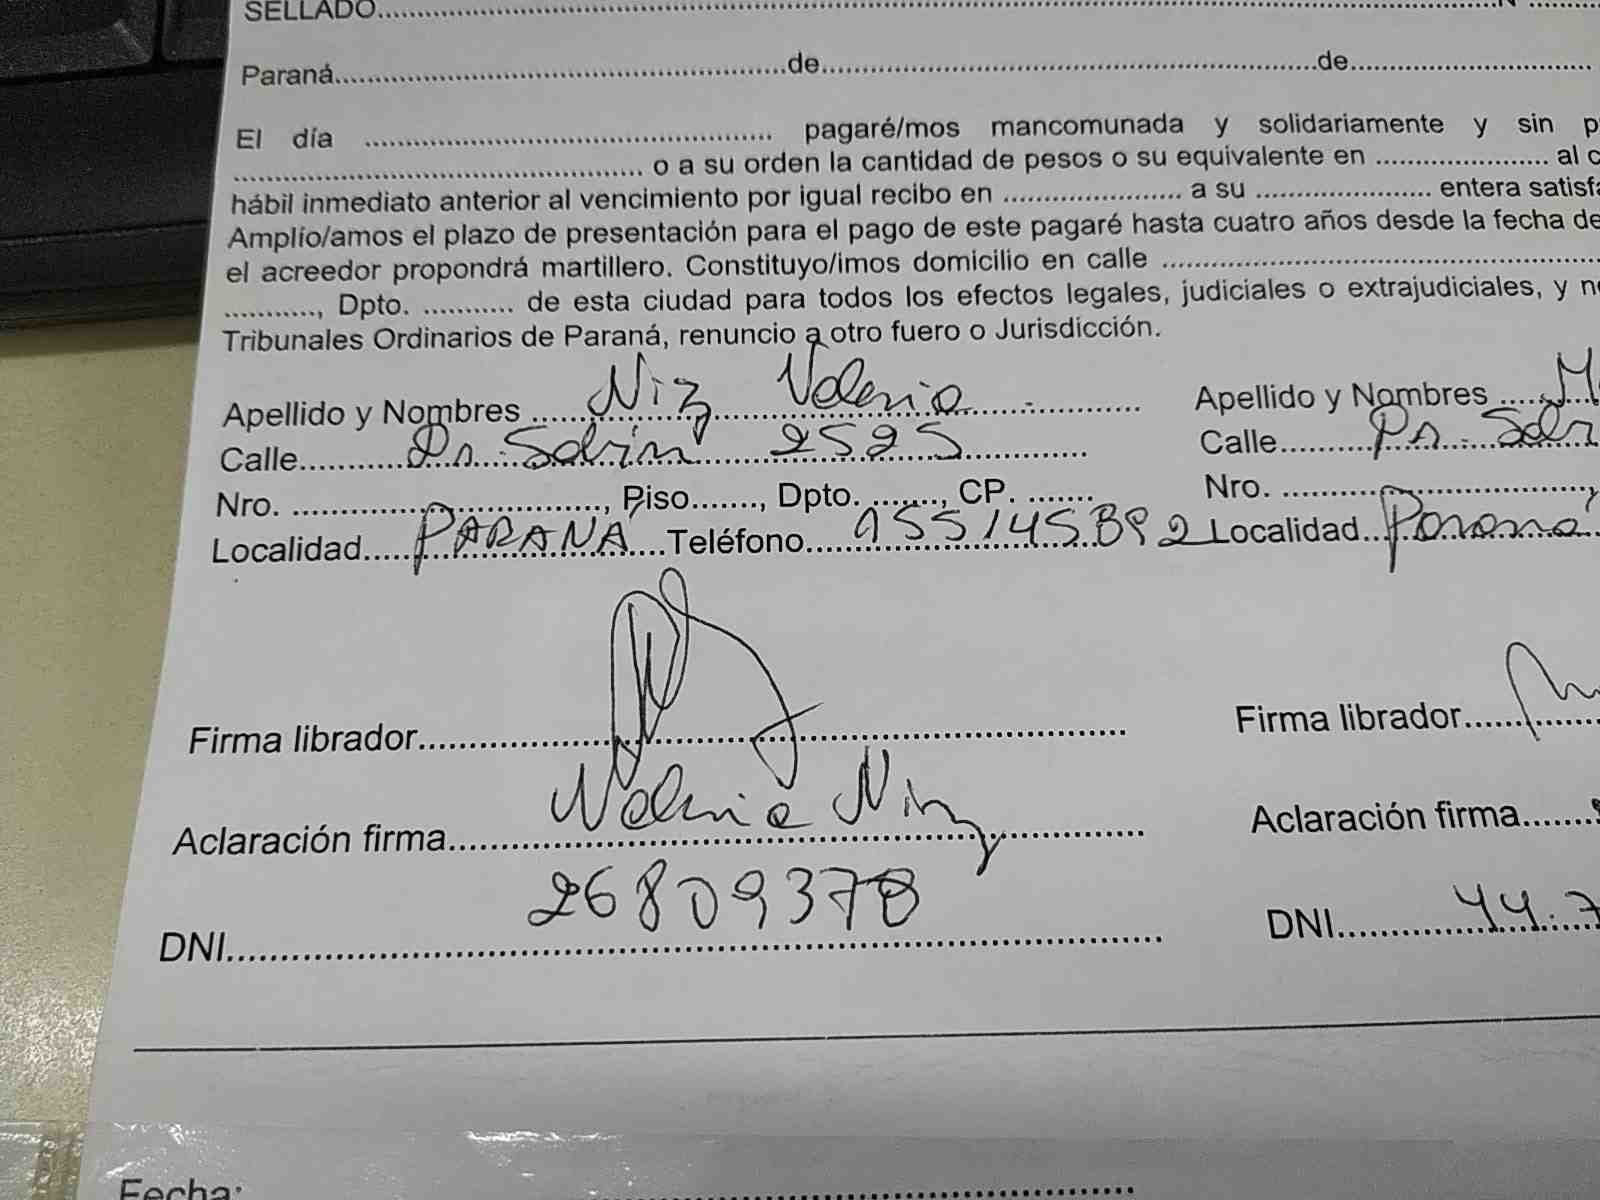 SELLADO
Paraná de de
El día pagaré/mos mancomunada y solidariamente y sin p
o a su orden la cantidad de pesos o su equivalente en al c
hábil inmediato anterior al vencimiento por igual recibo en a su entera satisfa
Amplío/amos el plazo de presentación para el pago de este pagaré hasta cuatro años desde la fecha de
el acreedor propondrá martillero. Constituyo/imos domicilio en calle
, Dpto. de esta ciudad para todos los efectos legales, judiciales o extrajudiciales, y n
Tribunales Ordinarios de Paraná, renuncio a otro fuero o Jurisdicción.
Apellido y Nombres Niz Valeria
Calle 2525
Nro. , Piso, Dpto. , CP.
Localidad PARANÁ Teléfono
Firma librador
Aclaración firma Valeria Niz
DNI 26809378
Apellido y Nombres M
Calle
Nro.
Localidad Paraná
Firma librador
Aclaración firma
DNI 44.7
Fecha: